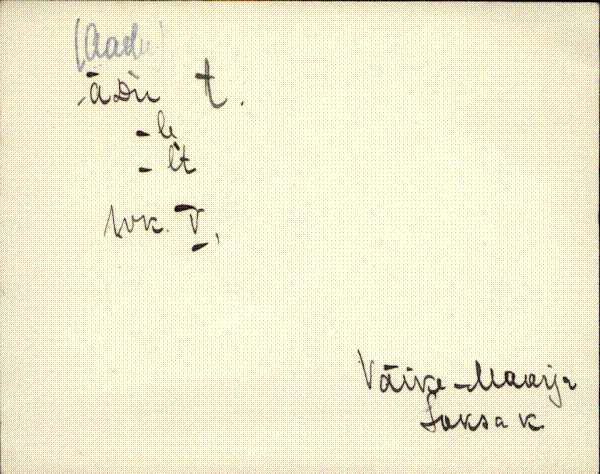 (Aadu)
ādu t.
-le
-lt
tok. V,
Väike-Maarja
Soksa k